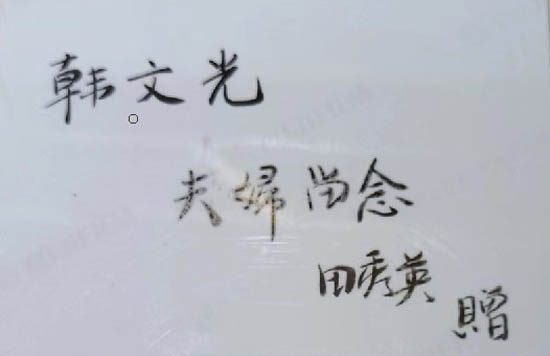 韩文光
夫婦留念
田秀英
贈